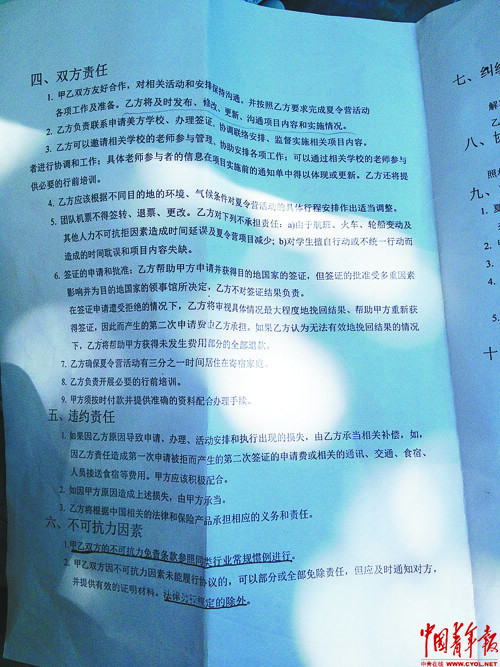 四、双方责任
1. 甲乙双方友好合作，对相关活动和安排保持沟通，并按照乙方要求完成夏令营活动
各项工作及准备。乙方将及时发布、修改、更新、沟通项目内容和实施情况。
2. 乙方负责联系申请美方学校、办理签证、协调联络安排、监督实施相关项目内容。
3. 乙方可以邀请相关学校的老师参与管理，协助安排各项工作；可以通过相关学校的老师参与
者进行协调和工作；具体老师参与者的信息在项目实施前的通知单中得以体现或更新。乙方还将提
供必要的行前培训。
4. 乙方应该根据不同目的地的环境、气候条件对夏令营活动的具体行程安排作出适当调整。
5. 团队机票不得签转、退票、更改。乙方对下列不承担责任：a)由于航班、火车、轮船变动及
其他人力不可抗拒因素造成时间延误及夏令营项目减少；b)对学生擅自行动或不统一行动而
造成的时间耽误和项目内容失缺。
6. 签证的申请和批准：乙方帮助甲方申请并获得目的地国家的签证，但签证的批准受多重因素
影响并为目的地国家的领事馆所决定，乙方不对签证结果负责。
在签证申请遭受拒绝的情况下，乙方将审视具体情况最大程度地挽回结果、帮助甲方重新获
得签证，因此而产生的第二次申请费由乙方承担。如果乙方认为无法有效地挽回结果的情况
下，乙方将帮助甲方获得未发生费用部分的全部退款。
7. 乙方确保夏令营活动有三分之一时间居住在寄宿家庭。
8. 乙方负责开展必要的行前培训。
9. 甲方须按时付款并提供准确的资料配合办理手续。
五、违约责任
1. 如果因乙方原因导致申请、办理、活动安排和执行出现的损失，由乙方承当相关补偿，如，
因乙方责任造成第一次申请被拒而产生的第二次签证的申请费或相关的通讯、交通、食宿、
人员接送食宿等费用。甲方应该积极配合。
2. 如因甲方原因造成上述损失，由甲方承当。
3. 乙方将根据中国相关的法律和保险产品承担相应的义务和责任。
六、不可抗力因素
1.甲乙双方的不可抗力免责条款参照同类行业常规惯例进行。
2. 甲乙双方因不可抗力因素未能履行协议的，可以部分或全部免除责任，但应及时通知对方，
并提供有效的证明材料，法律另有规定的除外。
七、纠纷
解
乙
八、协
照相
九、
1. 夏
2.
3.
5.
十
中国青年报
中青在线 WWW.CYOL.NET